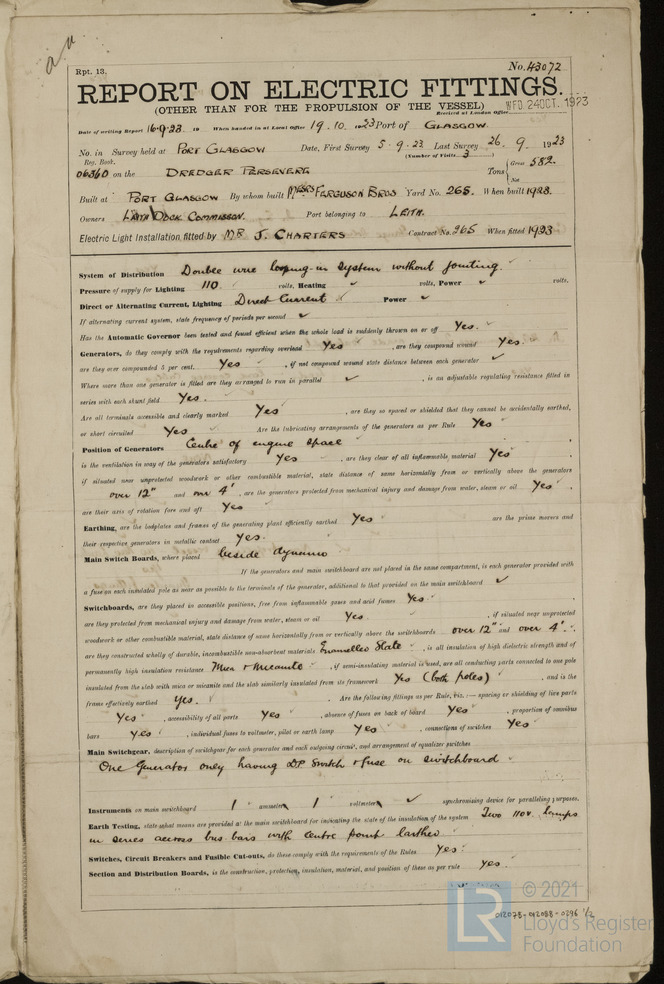 Rpt. 13.
No. 43072
REPORT ON ELECTRIC FITTINGS.
(OTHER THAN FOR THE PROPULSION OF THE VESSEL)
Received at London Office
WED. 24 OCT. 1923
Date of writing Report 16-9-23 19 When handed in at Local Office 19.10.1923 Port of GLASGOW.
No. in Survey held at PORT GLASGOW Date, First Survey 5.9.23 Last Survey 26.9.1923
Reg. Book. (Number of Visits 3)
06360 on the DREDGER PERSEVERE Tons { Gross 582. Net
Built at PORT GLASGOW By whom built MESSRS FERGUSON BROS Yard No. 265. When built 1923.
Owners LEITH DOCK COMMISSION. Port belonging to LEITH.
Electric Light Installation fitted by MR J. CHARTERS Contract No. 265 When fitted 1923
System of Distribution Double wire looping-in system without jointing.
Pressure of supply for Lighting 110 volts, Heating ✓ volts, Power ✓ volts.
Direct or Alternating Current, Lighting Direct Current Power ✓
If alternating current system, state frequency of periods per second ✓
Has the Automatic Governor been tested and found efficient when the whole load is suddenly thrown on or off Yes.
Generators, do they comply with the requirements regarding overload Yes, are they compound wound Yes.
are they over compounded 5 per cent. Yes, if not compound wound state distance between each generator ✓
Where more than one generator is fitted are they arranged to run in parallel ✓, is an adjustable regulating resistance fitted in
series with each shunt field Yes.
Are all terminals accessible and clearly marked Yes, are they so spaced or shielded that they cannot be accidentally earthed,
or short circuited Yes Are the lubricating arrangements of the generators as per Rule Yes
Position of Generators Centre of engine space
is the ventilation in way of the generators satisfactory Yes, are they clear of all inflammable material Yes
if situated near unprotected woodwork or other combustible material, state distance of same horizontally from or vertically above the generators
over 12" and over 4', are the generators protected from mechanical injury and damage from water, steam or oil Yes.
are their axis of rotation fore and aft Yes
Earthing, are the bedplates and frames of the generating plant efficiently earthed Yes are the prime movers and
their respective generators in metallic contact Yes.
Main Switch Boards, where placed beside dynamo
If the generators and main switchboard are not placed in the same compartment, is each generator provided with
a fuse on each insulated pole as near as possible to the terminals of the generator, additional to that provided on the main switchboard ✓
Switchboards, are they placed in accessible positions, free from inflammable gases and acid fumes Yes.
are they protected from mechanical injury and damage from water, steam or oil Yes., if situated near unprotected
woodwork or other combustible material, state distance of same horizontally from or vertically above the switchboards over 12" and over 4'.
are they constructed wholly of durable, incombustible non-absorbent materials Enamelled Slate, is all insulation of high dielectric strength and of
permanently high insulation resistance Mica + Micanite, if semi-insulating material is used, are all conducting parts connected to one pole
insulated from the slab with mica or micanite and the slab similarly insulated from its framework Yes (both poles), and is the
frame effectively earthed Yes. Are the following fittings as per Rule, viz.:— spacing or shielding of live parts
Yes, accessibility of all parts Yes, absence of fuses on back of board Yes, proportion of omnibus
bars Yes, individual fuses to voltmeter, pilot or earth lamp Yes, connections of switches Yes
Main Switchgear, description of switchgear for each generator and each outgoing circuit, and arrangement of equalizer switches
One Generator only having DP Switch + fuse on switchboard
Instruments on main switchboard 1 ammeter 1 voltmeter ✓ synchronising device for paralleling purposes.
Earth Testing, state what means are provided at the main switchboard for indicating the state of the insulation of the system Two 110v. Lamps
in series across bus bars with centre point earthed
Switches, Circuit Breakers and Fusible Cut-outs, do these comply with the requirements of the Rules Yes.
Section and Distribution Boards, is the construction, protection, insulation, material, and position of these as per rule Yes.
012078-012088-0296 1/2
LR © 2021
Lloyd's Register
Foundation